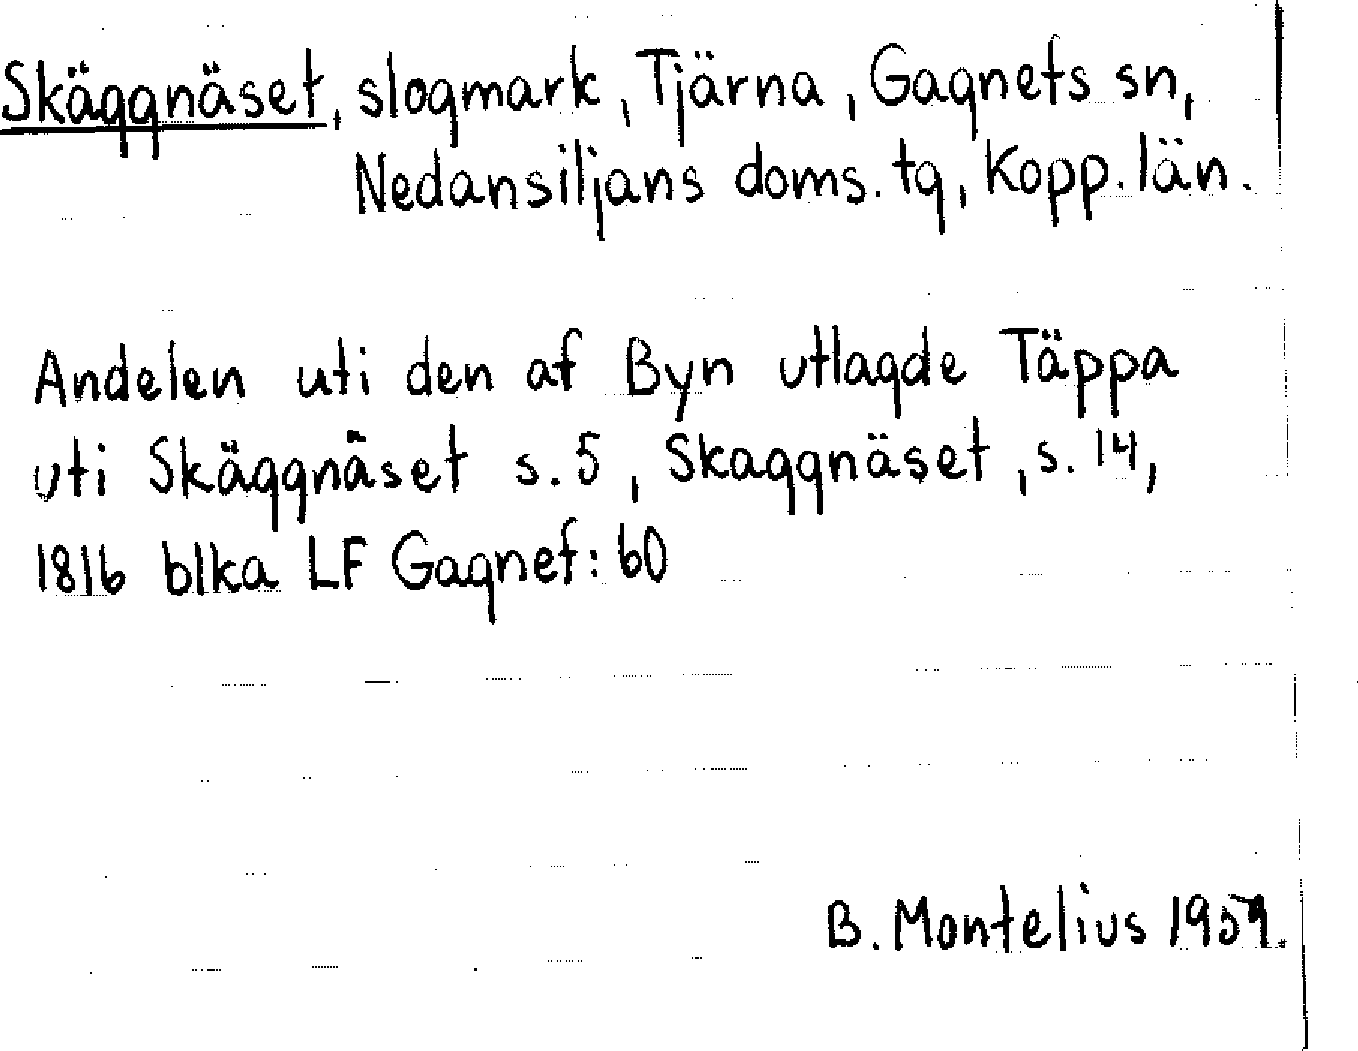 Skäggnäset, slogmark, Tjärna, Gagnefs sn,
Nedansiljans doms. tg, Kopp. län.
Andelen uti den af Byn utlagde Täppa
uti Skäggnäset s. 5, Skaggnäset, s. 14,
1816 blka LF Gagnef: 60
B. Montelius 1959.